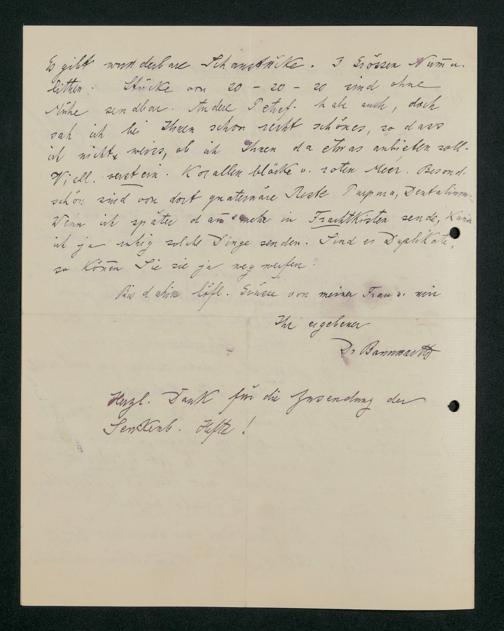 Es gibt wunderbare Schaustücke. 3 Grössen Numu-
lithen. Stücke von 20 - 20 - 20 sind ohne
Mühe sendbar. Andere Petref. habe auch, doch
sah ich bei Ihnen schon recht schönes, so dass
ich nicht weiss, ob ich Ihnen da etwas anbieten soll.
Viell. verstein. Korallenblöcke v. roten Meer. Besond.
schön sind von dort quaternäre Reste Purpura, Dentalium.
Wenn ich später dann mehr in Frachtkisten sende, kann
ich ja ruhig solche Dinge senden. Sind es Duplikate,
so können Sie sie ja wegwerfen.
Bis dahin höfl. Grüsse von meiner Frau u. mir
Ihr ergebener
Dr
Herzl. Dank für die Zusendung der
Senkenb. Hefte!